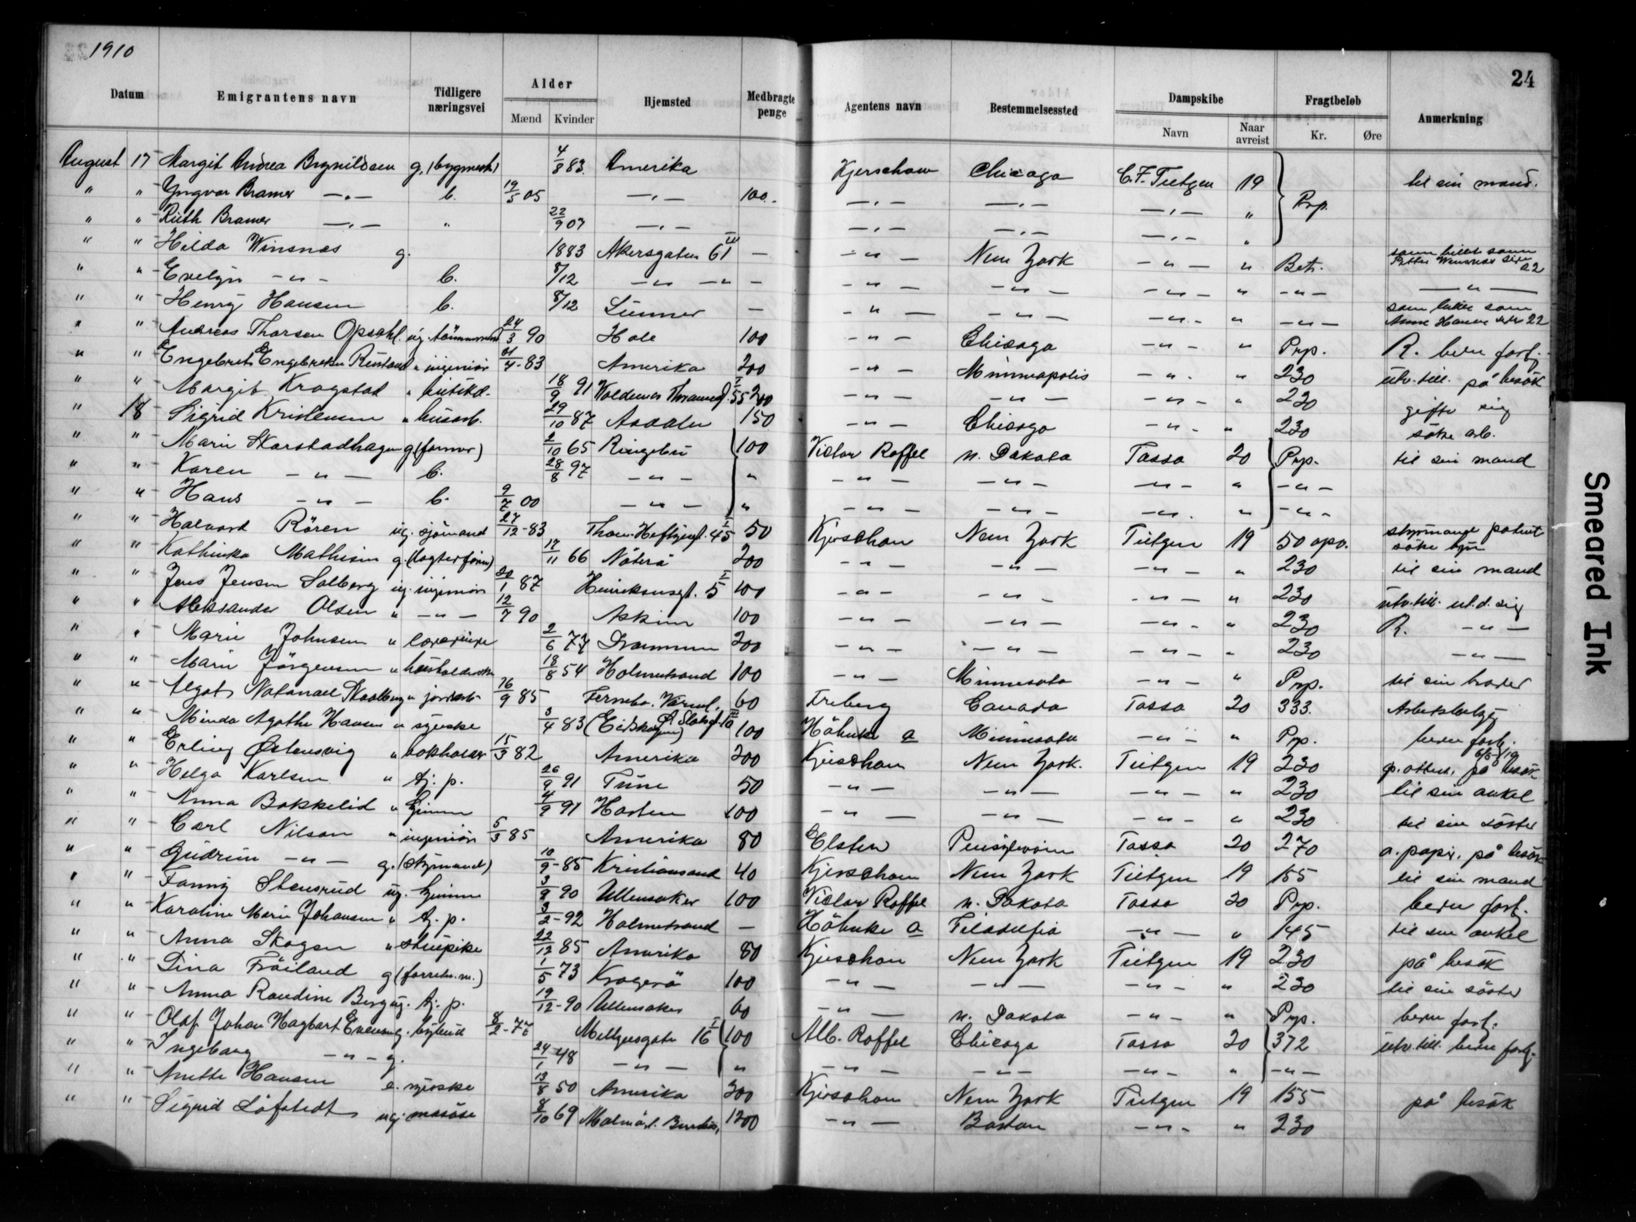 1910
24
Datum Emigrantens navn Tidligere næringsvei Alder Mænd Kvinder Hjemsted Medbragte penge Agentens navn Bestemmelsessted Dampskibe Navn Naar avreist Fragtbeløb Kr. Øre Anmerkning
August 17 Margit Andrea Brynildsen g. (bygmest) 4/8 83 Amerika Kjerschow Chicago C.F. Tietgen 19 til sin mand.
" " Yngvar Bramer —"— b. 19/5 05 —"— 100. —"— —"— —"— " Prp.
" " Ruth Bramer —"— " 22/9 07 —"— —"— —"— —"— "
" " Hilda Winsnæs g. 1883 Akersgaten 61 III — —"— New York —"— " Bet.
" " Evelyn —"— b. 8/12 —"— —"— — —"— —"— —"— " —"— —"—
" " Henry Hansen b. 8/12 Lunner — —"— —"— —"— " —"— 22
" " Andreas Thorsen Opsahl ug. tømmermand 24/3 90 Hole 100 —"— Chicago —"— " Prp. R. bedre fortj.
" " Engebret Engebretsen Rustand " ingeniør /4-83 Amerika 200 —"— Minneapolis —"— " 230 utv. till. på besøk
" " Margit Kragstad " 18/9 91 Waldemar Thranesg. 55 I 200 —"— —"— —"— " 230 gifte sig
" 18 Sigrid Kristensen " husarb. 29/10 87 Asdalen 150 —"— Chicago —"— " 230 søke arb.
" " Marie Skarstadhagen g (farmer) 2/10 65 Ringebu 100 Victor Roffel N. Dakota Tasso 20 Prp. til sin mand
" " Karen —"— b. 28/8 97 —"— " —"— —"— —"— " —"—
" " Hans —"— b. 9/7 00 —"— " —"— —"— —"— " —"—
" " Halvard Røren ug. sjømand 27/12-83 Thom. Heftyesgt. 45 I 50 Kjerschow New York Tietgen 19 50 opv. styrmands patent søke hyre
" " Kathinka Mathisen g (lagterform) 17/11 66 Nøterø 200 —"— —"— —"— " 230 til sin mand
" " Jens Jensen Solberg ug. ingeniør 20/1 87 Henriksensgt. 5 I 100 —"— —"— —"— " 230 utv. till. utd. sig
" " Aleksander Olsen " —"— 12/7 90 Askim 100 —"— —"— —"— " 230 R. —"—
" " Marie Johnsen " 2/6 77 Drammen 200 —"— —"— —"— " 230 —"—
" " Marie Jørgensen " husholderske 18/8 54 Holmestrand 100 —"— Minnesota —"— " Prp. til sin broder
" " Algot Natanael " jordarb. 16/9 85 Fernebo. Verml. 60 Freberg Canada Tasso 20 333. Arbeidsbetyg
" " Minda Agathe Hansen " syerske 3/4 83 (Eidskogen) 100 Høhnke a Minnesota —"— " Prp. bedre fortj.
" " Erling Østensvig " bokholder 15/3 82 Amerika 200 Kjerschow New York. Tietgen 19 230 på besøk
" " Helga Karlsen " tj. p. 26/9 91 Tune 50 —"— —"— —"— " 230 til sin onkel
" " Anna Bakkelid " hjemme 4/9 91 Horten 100 —"— —"— —"— " 230 til sin søster
" " Carl Nilsen " ingeniør 5/3 85 Amerika 80 Elsten Pensylvania Tasso 20 270 a. papir. på besøk
" " Gudrun —"— g. (styrmand) 10/9-85 Kristiansand 40 Kjerschow New York Tietgen 19 155 til sin mand
" " Fanny Stensrud ug. hjemme 3/8 90 Ullensaker 100 Victor Roffel N. Dakota Tasso 20 Prp. bedre fortj.
" " Karoline Marie Johansen " tj. p. 3/2-92 Holmestrand — Høhnke a Filadelfia —"— " 145 til sin onkel
" " Anna Skogen " stuepike 22/12 85 Amerika 80 Kjerschow New York Tietgen 19 230 på besøk
" " Dina Frøiland g (forretn.m.) 1/5 73 Kragerø 100 —"— —"— —"— " 230 til sin søster
" " Anna Randine Berg ug. tj. p. 19/12-90 Ullensaker 60 —"— N. Dakota —"— " Prp. bedre fortj.
" " Olaf Johan Hagbart Evensen g. bybud 8/2-77 Meltzersgate 16 I 100 Alb. Roffel Chicago Tasso 20 372 utv. till. bedre fortj.
" " Ingeborg —"— g. 24/1 48 —"— " —"— —"— —"— " —"—
" " Anette Hansen e. syerske 13/8 50 Amerika 200 Kjerschow New York Tietgen 19 155 på besøk
" " Sigrid Løfstedt ug. masøse 8/10 69 1200 —"— Boston —"— " 230
Smeared Ink